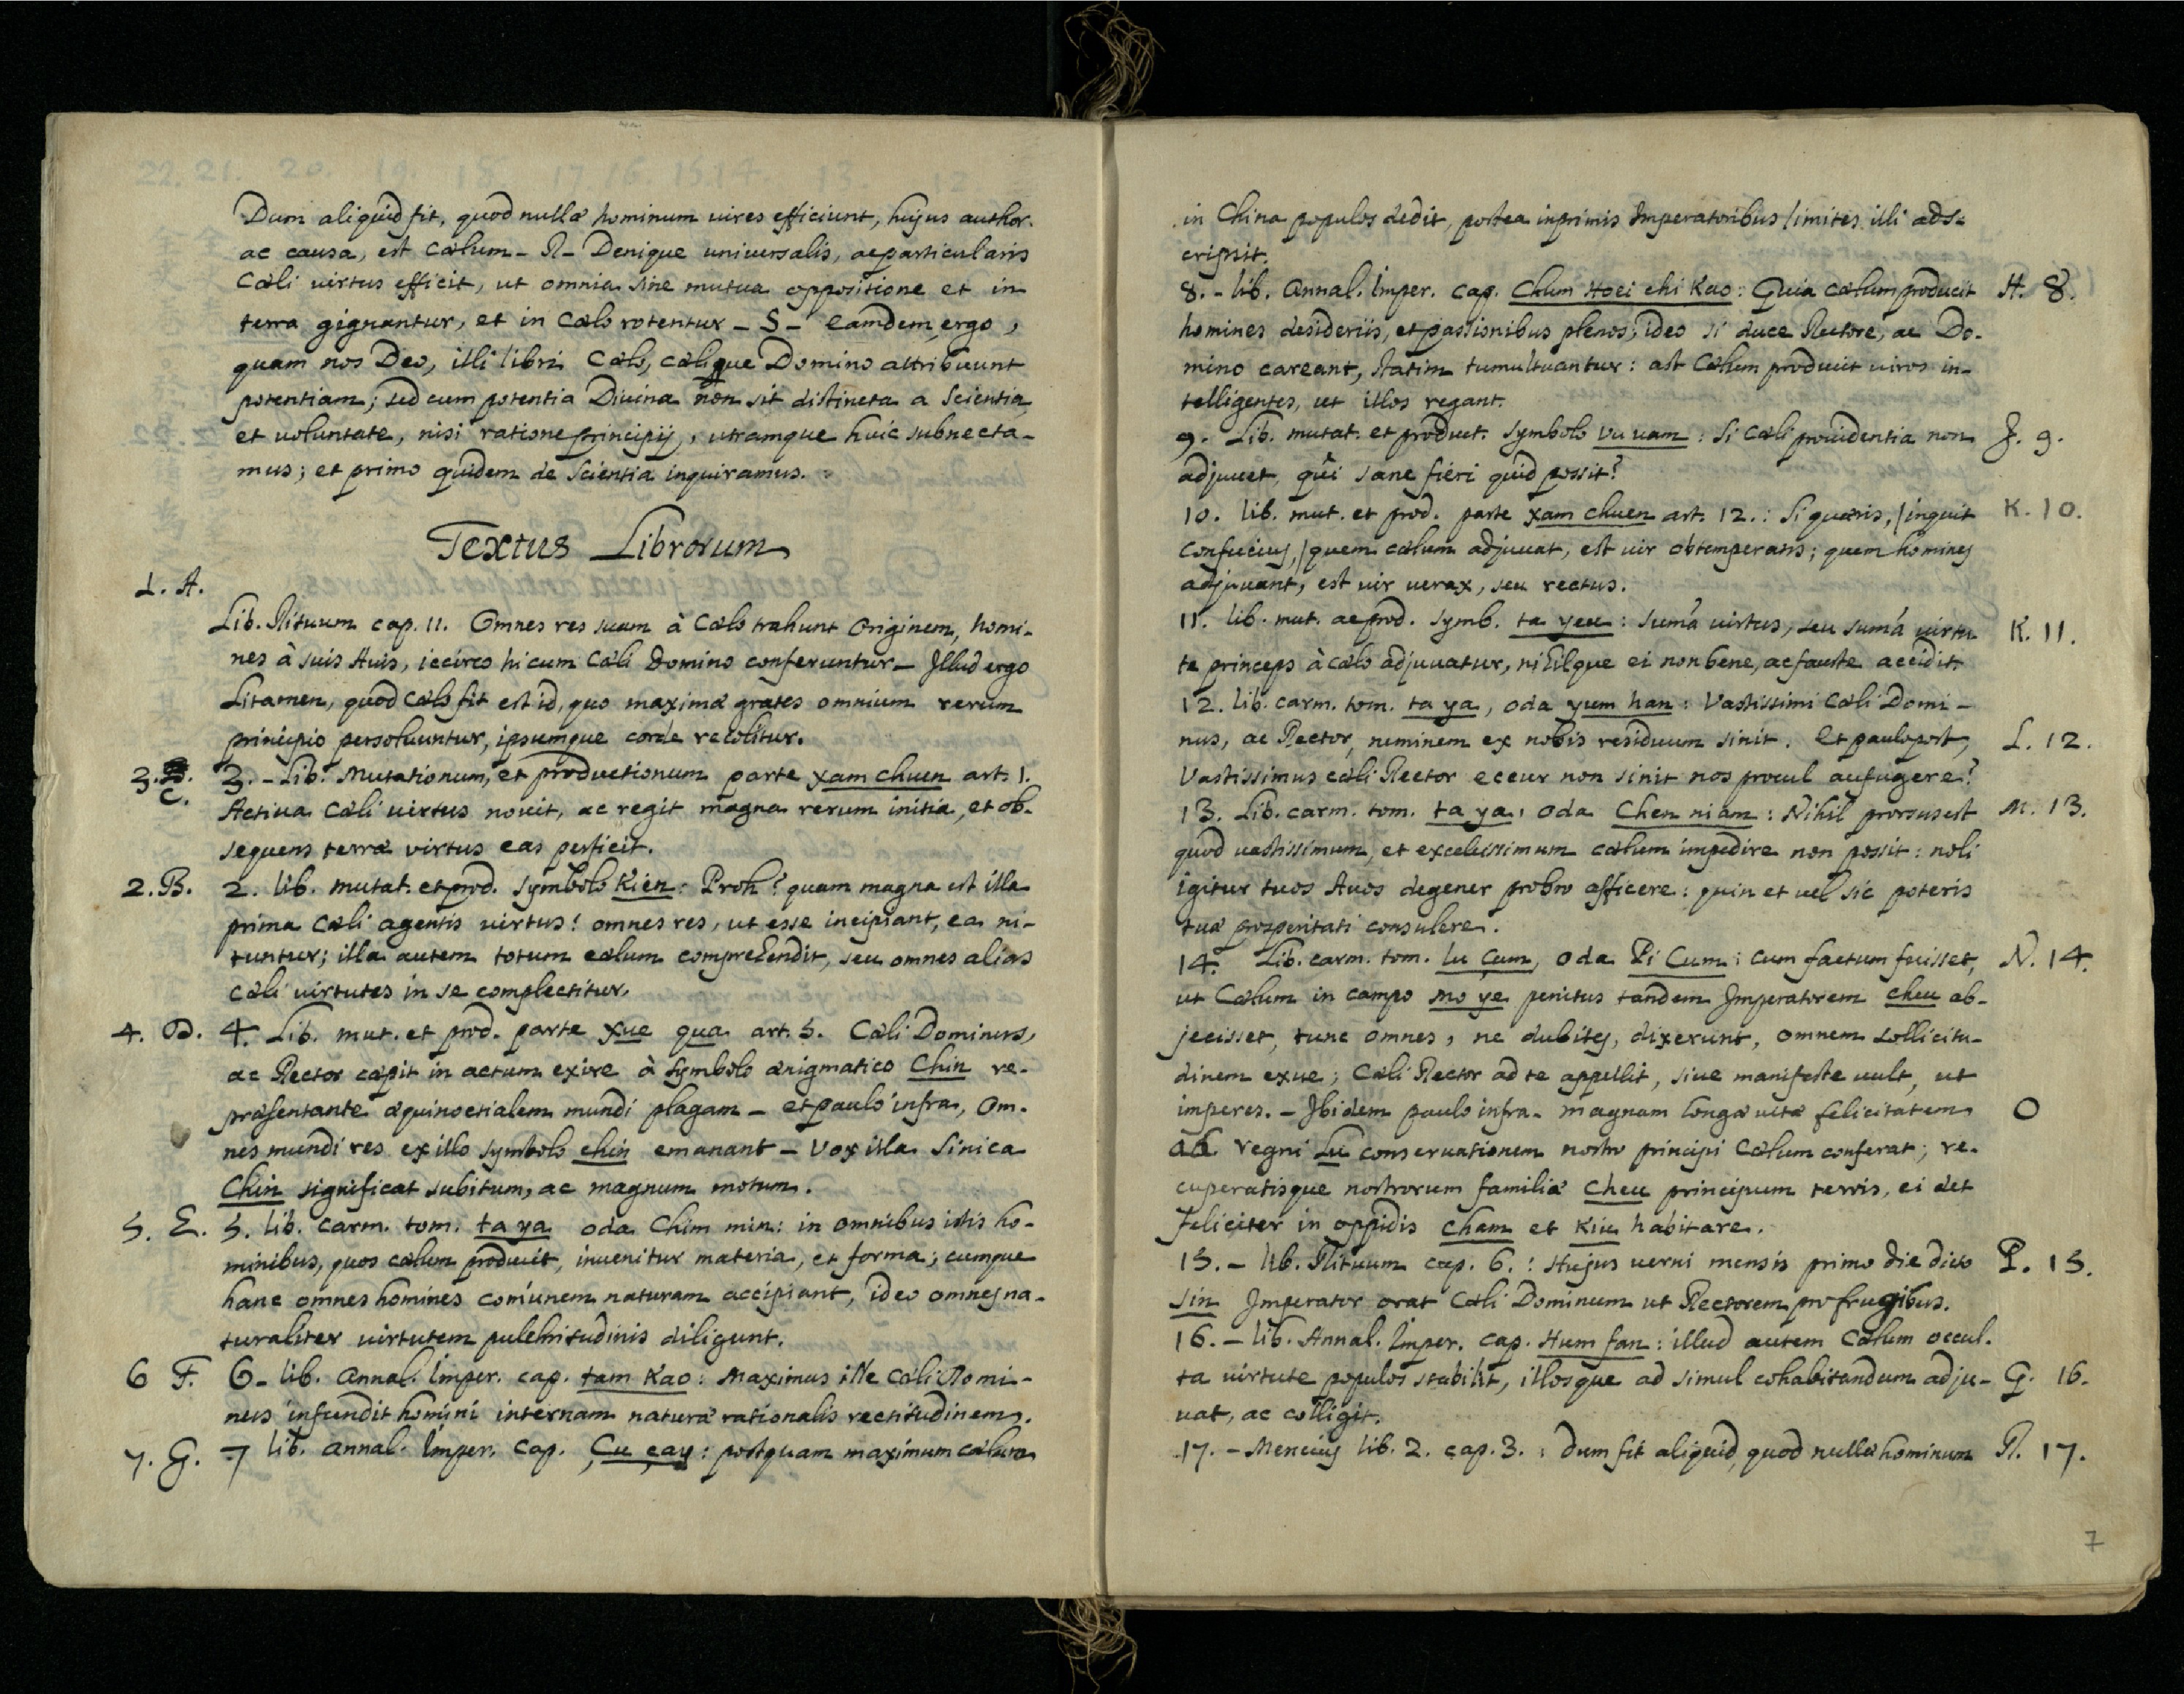 Dum aliquid fit, quod nullæ hominum vires efficiunt, hujus author
ac causa, est Cœlum - R - Denique universalis, ac particularis
Cœli virtus efficit, ut omnia sine mutua oppositione et in
terra gignantur, et in Cœlo rotentur - S - Eamdem ergo,
quam nos Deo, illi libri Cœlo, cœlique Domino attribuunt
potentiam; sed cum potentia Divina non sit distincta a Scientia
et voluntate, nisi ratione principij, utramque huic subnecta-
mus; et primo quidem de Scientia inquiramus.
Textus Librorum
1. A.
Lib. Rituum cap. 11. Omnes res suam à Cœlo trahunt Originem, homi-
nes à suis Avis, iccirco hi cum Cœli Domino conferuntur - Illud ergo
Litamen, quod Cœlo fit est id, quo maximæ grates omnium rerum
principio persolvuntur, ipsumque corde recolitur.
3. C. 3. - Lib. Mutationum, et productionum parte xam chuen art. 1.
Activa Cœli virtus novit, ac regit magna rerum initia, et ob-
sequens terræ virtus eas perficit.
2. B. 2. lib. mutat. et prod. symbolo Kien: Proh! quam magna est illa
prima Cœli agentis virtus! omnes res, ut esse incipiant, ea ni-
tuntur; illa autem totum cœlum comprehendit, seu omnes alias
Cœli virtutes in se complectitur.
4. D. 4. Lib. mut. et prod. parte xue qua art. 5. Cœli Dominus,
ac Rector cœpit in actum exire à symbolo ænigmatico Chin re-
præsentante æquinoctialem mundi plagam - et paulo infra, Om-
nes mundi res ex illo symbolo chin emanant - Vox illa Sinica
Chin significat subitum, ac magnum motum.
5. E. 5. lib. carm. tom. ta ya oda Chim min: in omnibus istis ho-
minibus, quos cœlum producit, invenitur materia, et forma; cumque
hanc omnes homines comunem naturam accipiant, ideo omnes na-
turaliter virtutem pulchritudinis diligunt.
6 F. 6 - lib. Annal. Imper. cap. tam Kao: Maximus ille Cœli Domi-
nus infundit homini internam naturæ rationalis rectitudinem.
7. G. 7 lib. Annal. Imper. Cap. Çu çay: postquam maximum cœlum
in China populos dedit, postea inprimis Imperatoribus limites illi ads-
cripsit.
8. - lib. Annal. Imper. cap. Chum Hoei chi Kao: Quia cœlum producit H. 8.
homines desideriis, et passionibus plenos, ideo si duce Rectore, ac Do-
mino careant, statim tumultuantur: ast Cœlum producit viros in-
telligentes, ut illos regant.
9. Lib. mutat. et product. symbolo vu vam: Si Cœli providentia non J. 9.
adjuvet, quî sane fieri quid possit?
10. lib. mut. et prod. parte xam chuen art. 12.: Si quæris, /inquit K. 10.
Confucius,/ quem cœlum adjuvat, est vir obtemperans; quem homines
adjuvant, est vir verax, seu rectus.
11. lib. mut. ac prod. symb. ta yeu: sumâ virtus, seu sumâ virtu K. 11.
te princeps à cœlo adjuvatur, nihilque ei non bene, ac fauste accidit.
12. lib. carm. tom. ta ya, oda yum han: Vastissimi Cœli Domi-
nus, ac Rector, neminem ex nobis residuum sinit. Et paulo post, L. 12.
Vastissimus cœli Rector eccur non sinit nos procul aufugere?
13. Lib. carm. tom. ta ya, oda Chen niam: Nihil prorsus est M. 13.
quod vastissimum, et excelsissimum cœlum impedire non possit: noli
igitur tuos Avos degener probro afficere: quin et vel sic poteris
tuæ prosperitati consulere.
14. Lib. carm. tom. lu çum, oda Pi Cum: cum factum fuisset, N. 14.
ut Cœlum in campo mo ye penitus tandem Imperatorem cheu ab-
jecisset, tunc omnes, ne dubites, dixerunt, omnem sollicitu-
dinem exue; Cœli Rector ad te appellit, sive manifeste vult, ut
imperes. - Ibidem paulo infra - magnam longæ vitæ felicitatem O
ab regni Lu conservationem nostro principi Cœlum conferat; re-
cuperatisque nostrorum familiæ Cheu principum terris, ei det
feliciter in oppidis cham et Kiu habitare.
15. - lib. Rituum cap. 6.: Hujus verni mensis primo die dicto P. 15.
sin Imperator orat Cœli Dominum ut Rectorem pro frugibus.
16. - lib. Annal. Imper. cap. Hum fan: illud autem Cœlum occul-
ta virtute populos stabilit, illosque ad simul cohabitandum adju- G. 16.
vat, ac colligit.
17. - Mencius lib. 2. cap. 3.: dum fit aliquid, quod nullæ hominum R. 17.
7